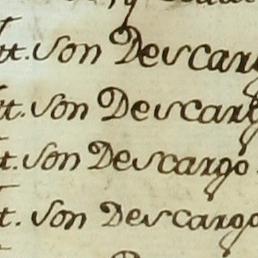 tt. Son Descarg
tt. Son Descarg
tt. Son Descargo.
t. Son Descargo